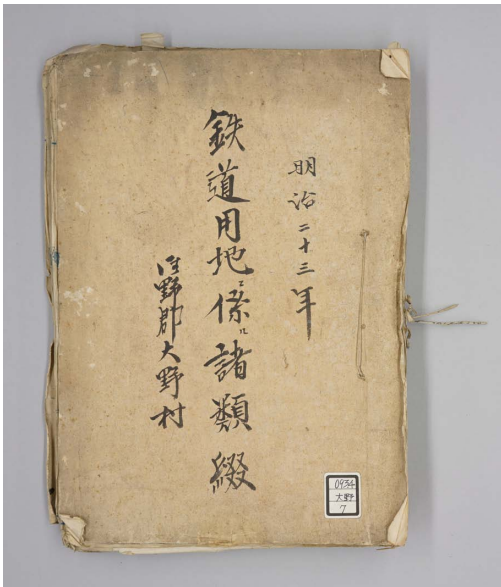 明治二十三年
鉄道用地ニ係ル諸類綴
佐野郡大野村
0934
大野
7